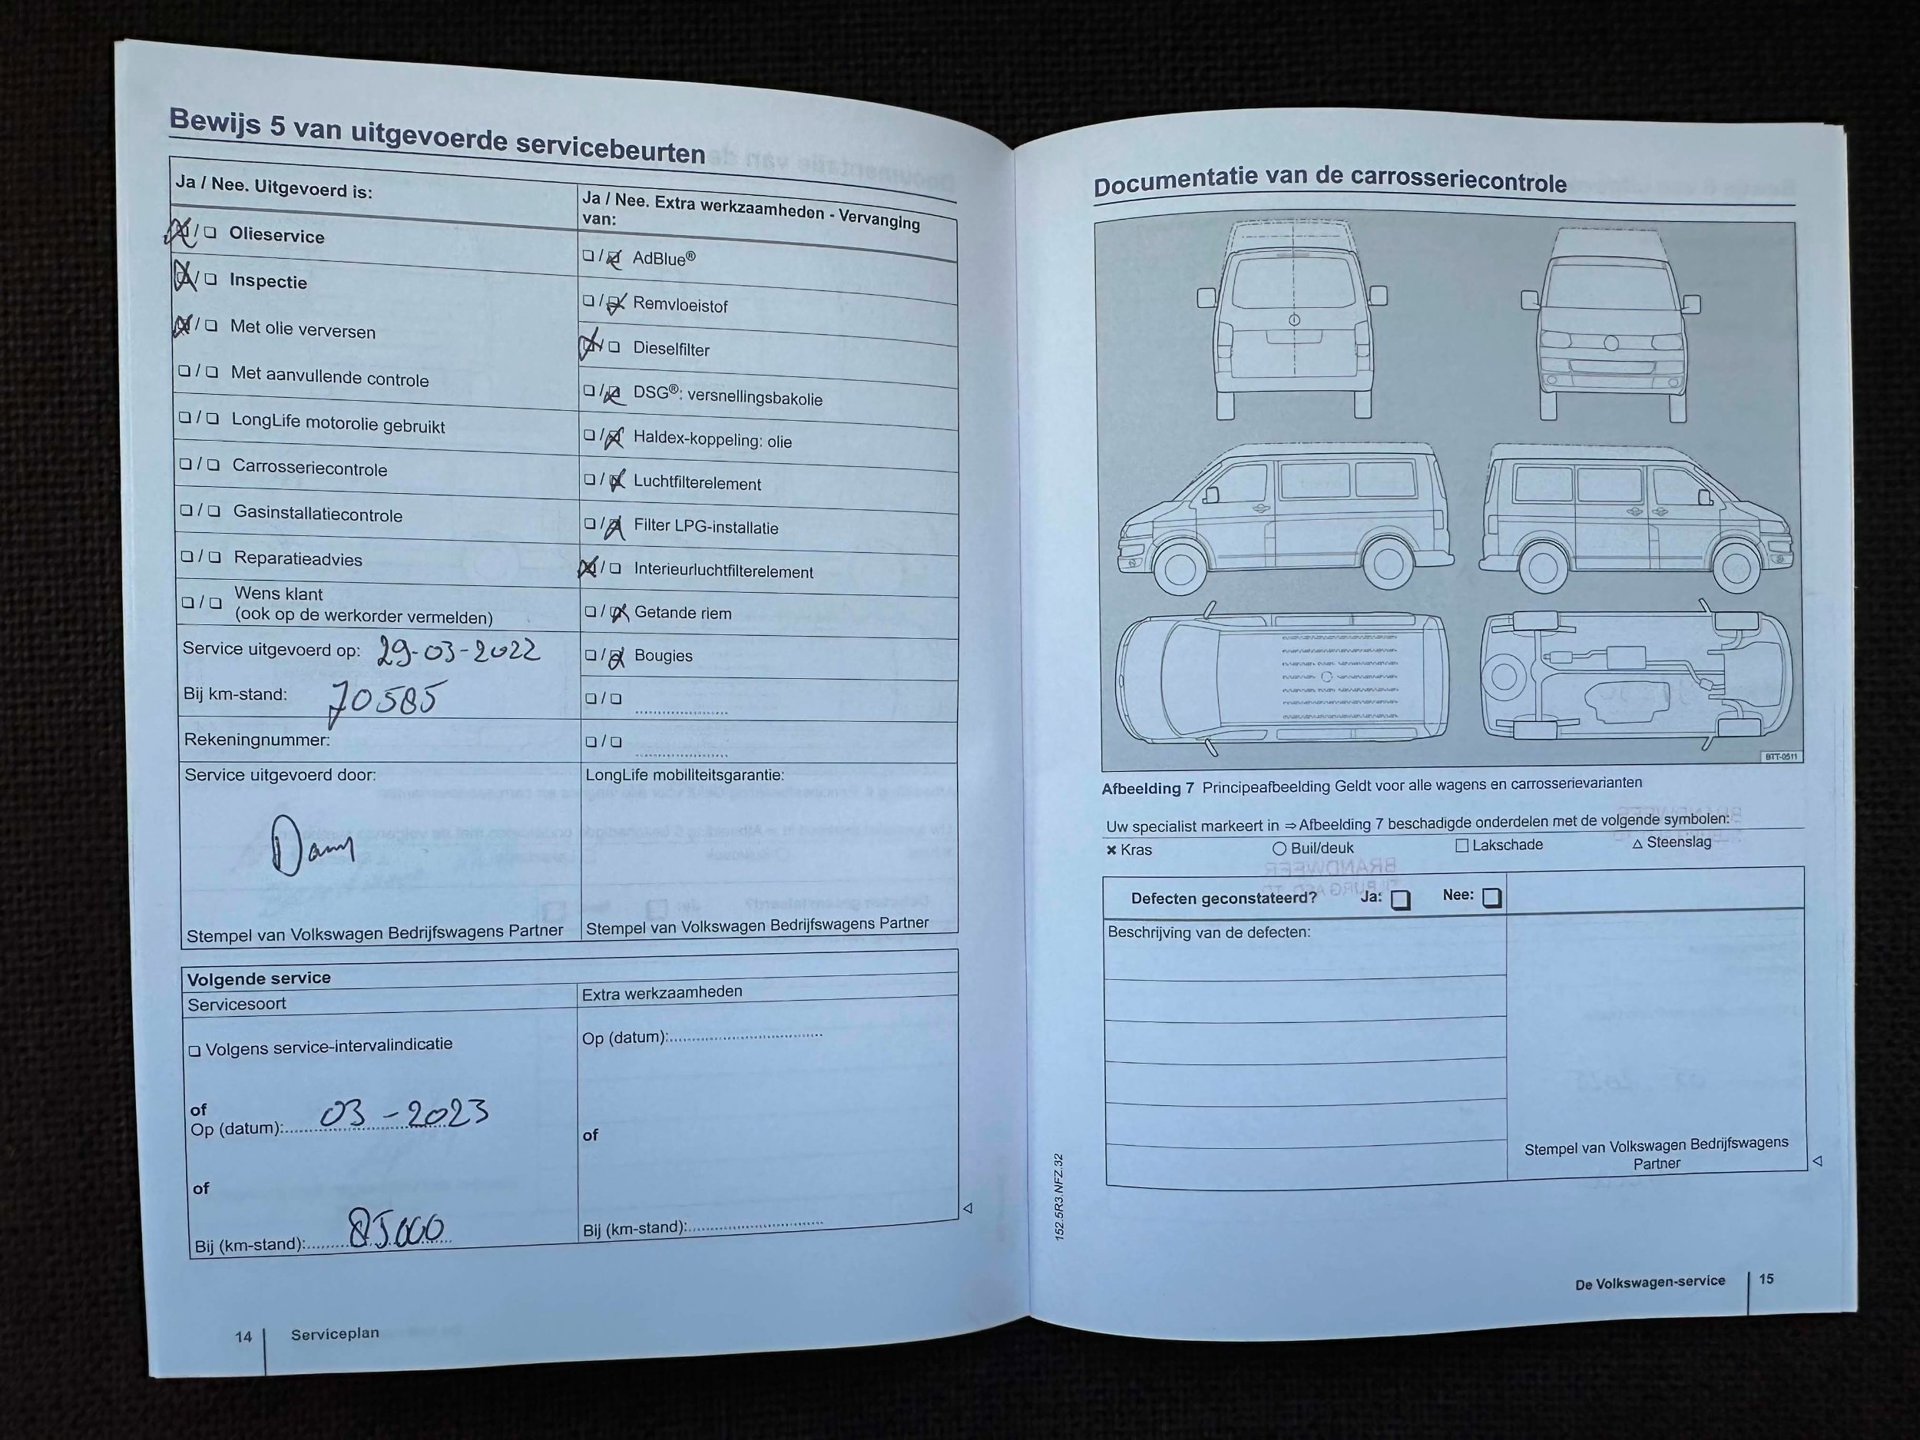 Bewijs 5 van uitgevoerde servicebeurten
Ja / Nee. Uitgevoerd is:
Olieservice
Inspectie
Met olie verversen
Met aanvullende controle
LongLife motorolie gebruikt
Carrosseriecontrole
Gasinstallatiecontrole
Reparatieadvies
Wens klant
(ook op de werkorder vermelden)
Service uitgevoerd op: 29-03-2022
Bij km-stand: 70585
Rekeningnummer:
Service uitgevoerd door:
Stempel van Volkswagen Bedrijfswagens Partner
Ja / Nee. Extra werkzaamheden - Vervanging
van:
AdBlue®
Remvloeistof
Dieselfilter
DSG®: versnellingsbakolie
Haldex-koppeling: olie
Luchtfilterelement
Filter LPG-installatie
Interieurluchtfilterelement
Getande riem
Bougies
LongLife mobiliteitsgarantie:
Stempel van Volkswagen Bedrijfswagens Partner
Volgende service
Servicesoort
Volgens service-intervalindicatie
of
Op (datum): 03-2023
of
Bij (km-stand): 85000
Extra werkzaamheden
Op (datum):
of
Bij (km-stand):
14 Serviceplan
Documentatie van de carrosseriecontrole
BTT-0511
Afbeelding 7 Principeafbeelding Geldt voor alle wagens en carrosserievarianten
Uw specialist markeert in ⇒ Afbeelding 7 beschadigde onderdelen met de volgende symbolen:
Kras
Buil/deuk
Lakschade
Steenslag
Defecten geconstateerd? Ja: Nee:
Beschrijving van de defecten:
Stempel van Volkswagen Bedrijfswagens
Partner
152.5R3.NFZ.32
De Volkswagen-service 15